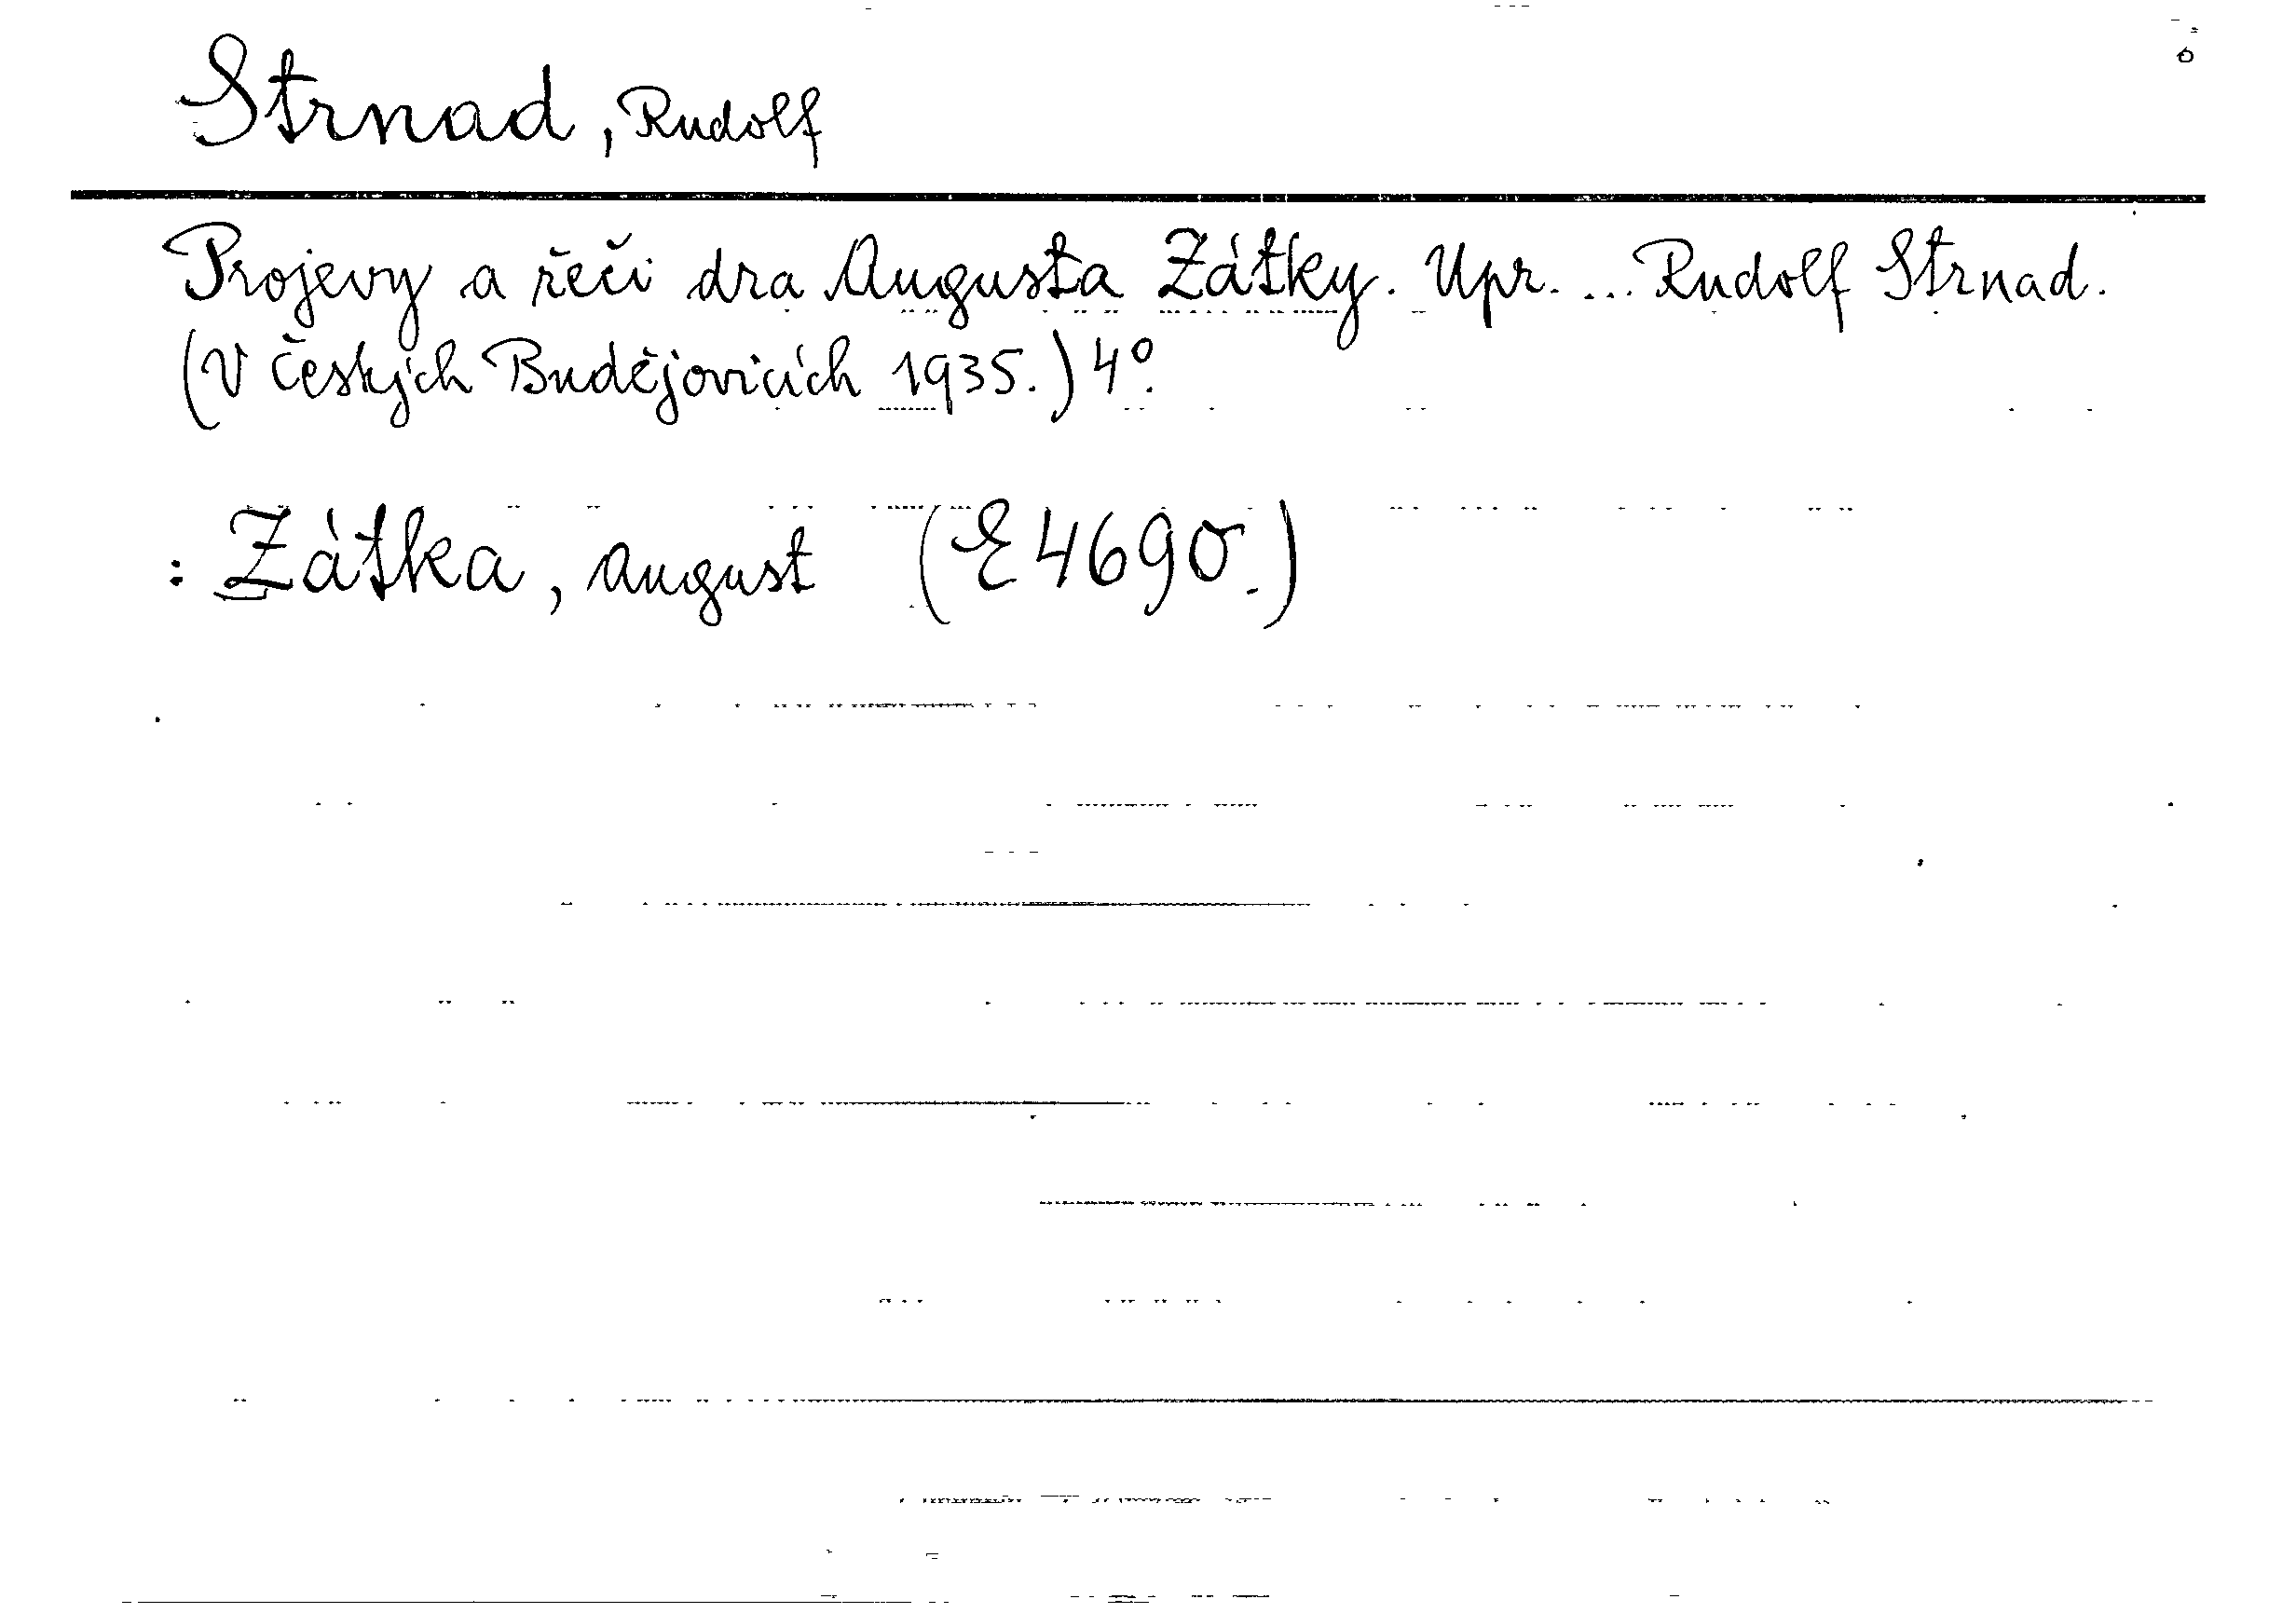 Strnad, Rudolf
Projevy a řeči dra Augusta Zátky. Upr. ... Rudolf Strnad.
(V Českých Budějovicích 1935.) 4°.
: Zátka, August (E 4690.)